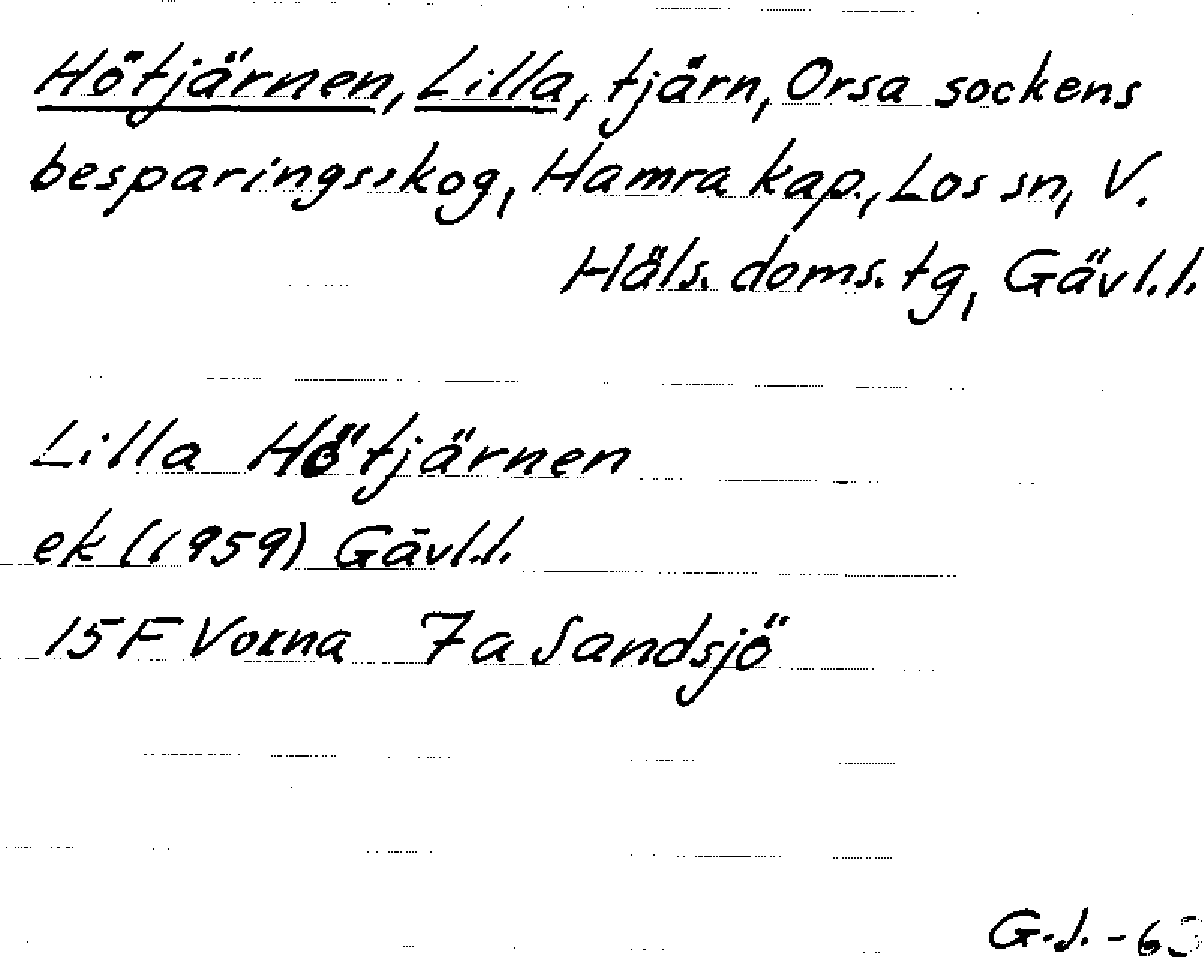 Hötjärnen, Lilla, tjärn, Orsa sockens
besparingsskog, Hamra kap., Los sn, V.
Häls. doms. tg, Gävl.l.
Lilla Hötjärnen
ek (1959) Gävl.l.
15F Voxna 7a Sandsjö
G.J. -63